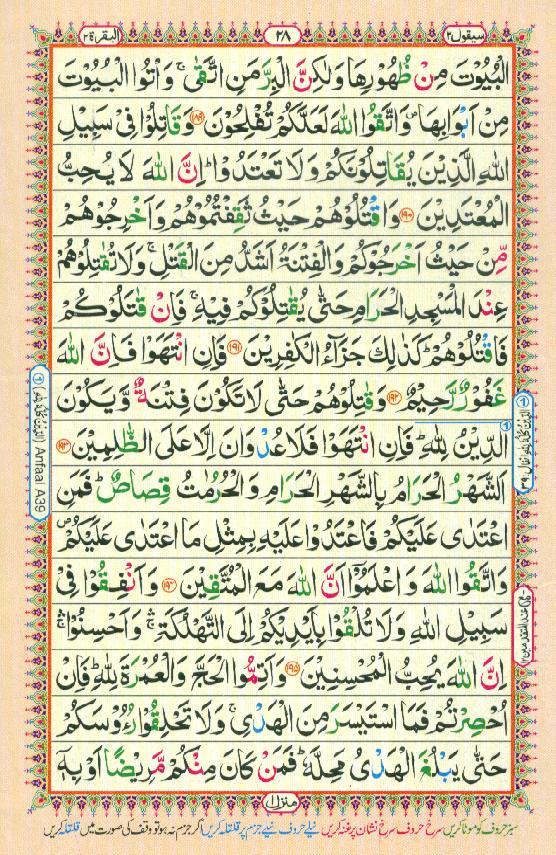 سیقول ٢
٢٨
البقرة ٢
الْبُيُوْتَ مِنْ ظُهُوْرِهَا وَلٰكِنَّ الْبِرَّ مَنِ اتَّقٰى ۚ وَاْتُوا الْبُيُوْتَ
مِنْ اَبْوَابِهَا ۪ وَاتَّقُوا اللّٰهَ لَعَلَّكُمْ تُفْلِحُوْنَ ﴿١٨٩﴾ وَقَاتِلُوْا فِيْ سَبِيْلِ
اللّٰهِ الَّذِيْنَ يُقَاتِلُوْنَكُمْ وَلَا تَعْتَدُوْا ؕ اِنَّ اللّٰهَ لَا يُحِبُّ
الْمُعْتَدِيْنَ ﴿١٩٠﴾ وَاقْتُلُوْهُمْ حَيْثُ ثَقِفْتُمُوْهُمْ وَاَخْرِجُوْهُمْ
مِّنْ حَيْثُ اَخْرَجُوْكُمْ وَالْفِتْنَةُ اَشَدُّ مِنَ الْقَتْلِ ۚ وَلَا تُقٰتِلُوْهُمْ
عِنْدَ الْمَسْجِدِ الْحَرَامِ حَتّٰى يُقٰتِلُوْكُمْ فِيْهِ ۚ فَاِنْ قٰتَلُوْكُمْ
فَاقْتُلُوْهُمْ ؕ كَذٰلِكَ جَزَآءُ الْكٰفِرِيْنَ ﴿١٩١﴾ فَاِنِ انْتَهَوْا فَاِنَّ اللّٰهَ
غَفُوْرٌ رَّحِيْمٌ ﴿١٩٢﴾ وَقٰتِلُوْهُمْ حَتّٰى لَا تَكُوْنَ فِتْنَةٌ وَّيَكُوْنَ
الدِّيْنُ لِلّٰهِ ؕ فَاِنِ انْتَهَوْا فَلَا عُدْوَانَ اِلَّا عَلَى الظّٰلِمِيْنَ ﴿١٩٣﴾
اَلشَّهْرُ الْحَرَامُ بِالشَّهْرِ الْحَرَامِ وَالْحُرُمٰتُ قِصَاصٌ ؕ فَمَنِ
اعْتَدٰى عَلَيْكُمْ فَاعْتَدُوْا عَلَيْهِ بِمِثْلِ مَا اعْتَدٰى عَلَيْكُمْ ۪
وَاتَّقُوا اللّٰهَ وَاعْلَمُوْۤا اَنَّ اللّٰهَ مَعَ الْمُتَّقِيْنَ ﴿١٩٤﴾ وَاَنْفِقُوْا فِيْ
سَبِيْلِ اللّٰهِ وَلَا تُلْقُوْا بِاَيْدِيْكُمْ اِلَى التَّهْلُكَةِ ۛۚ وَاَحْسِنُوْا ۛۚ
اِنَّ اللّٰهَ يُحِبُّ الْمُحْسِنِيْنَ ﴿١٩٥﴾ وَاَتِمُّوا الْحَجَّ وَالْعُمْرَةَ لِلّٰهِ ؕ فَاِنْ
اُحْصِرْتُمْ فَمَا اسْتَيْسَرَ مِنَ الْهَدْيِ ۚ وَلَا تَحْلِقُوْا رُءُوْسَكُمْ
حَتّٰى يَبْلُغَ الْهَدْيُ مَحِلَّهٗ ؕ فَمَنْ كَانَ مِنْكُمْ مَّرِيْضًا اَوْ بِهٖۤ
منزل ١
الدین کلہ للہ انفال: ٣٩
(الدِّيْنُ كُلُّهٗ لِلّٰهِ) Anfaal A39
سبز حروف کو موٹا کریں سرخ حروف سرخ نشان پر غنہ کریں نیلے حروف نیلے جزم پر قلقلہ کریں اگر جزم نہ ہو تو وقف کی صورت میں قلقلہ کریں